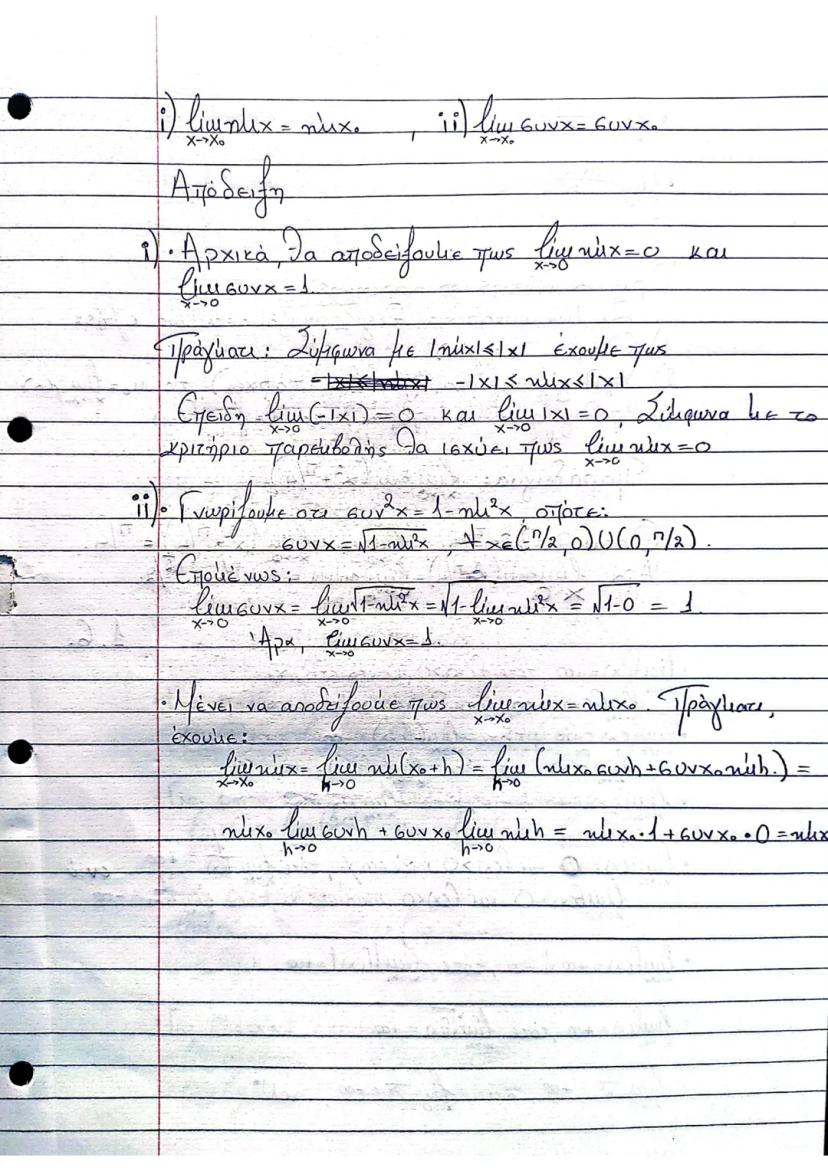 i) lim ημx = ημx₀ , ii) lim συνx = συνx₀
x→x₀ x→x₀
Απόδειξη
i) · Αρχικά, θα αποδείξουμε πως lim ημx = 0 και
x→0
lim συνx = 1.
x→0
Πράγματι: Σύμφωνα με |ημx| ≤ |x| έχουμε πως
-|x| ≤ ημx ≤ |x|
Επειδη lim (-|x|) = 0 και lim |x| = 0, Σύμφωνα με το
x→0 x→0
κριτήριο παρεμβολής θα ισχύει πως lim ημx = 0
x→0
ii) · Γνωρίζουμε οτι συν²x = 1 - ημ²x, οπότε:
συνx = √1-ημ²x, ∀ x ∈ (-π/2, 0) ∪ (0, π/2).
Επομένως:
lim συνx = lim √1-ημ²x = √1-lim ημ²x = √1-0 = 1
x→0 x→0 x→0
Άρα, lim συνx = 1.
x→0
· Μένει να αποδείξουμε πως lim ημx = ημx₀. Πράγματι,
x→x₀
έχουμε:
lim ημx = lim ημ(x₀+h) = lim (ημx₀ συνh + συνx₀ ημh.) =
x→x₀ h→0 h→0
ημx₀ lim συνh + συνx₀ lim ημh = ημx₀ · 1 + συνx₀ · 0 = ημx
h→0 h→0